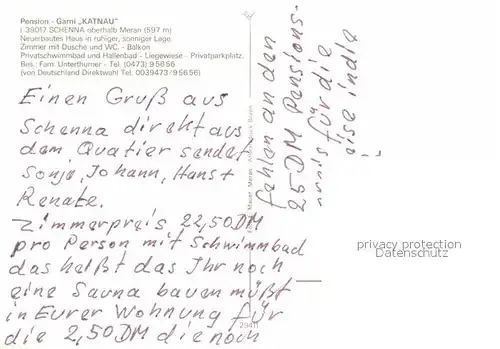 Pension - Garni „KATNAU"
I 39017 SCHENNA oberhalb Meran (597 m)
Neuerbautes Haus in ruhiger, sonniger Lage.
Zimmer mit Dusche und WC. - Balkon
Privatschwimmbad und Hallenbad - Liegewiese - Privatparkplatz.
Bes.: Fam. Unterthurner - Tel. (0473) 95656
(von Deutschland Direktwahl Tel. 0039473/95656)
Einen Gruß aus
Schenna direkt aus
dem Quatier sendet
Sonja, Johann, Hans +
Renate.
Zimmerpreis 22,50 DM
pro Person mit Schwimmbad
das heißt das Ihr noch
eine Sauna bauen müßt
in Eurer Wohnung für
die 2,50 DM die noch
fehlen an den
25 DM Pensions-
für die
in die
Meran
29411
privacy protection
Datenschutz